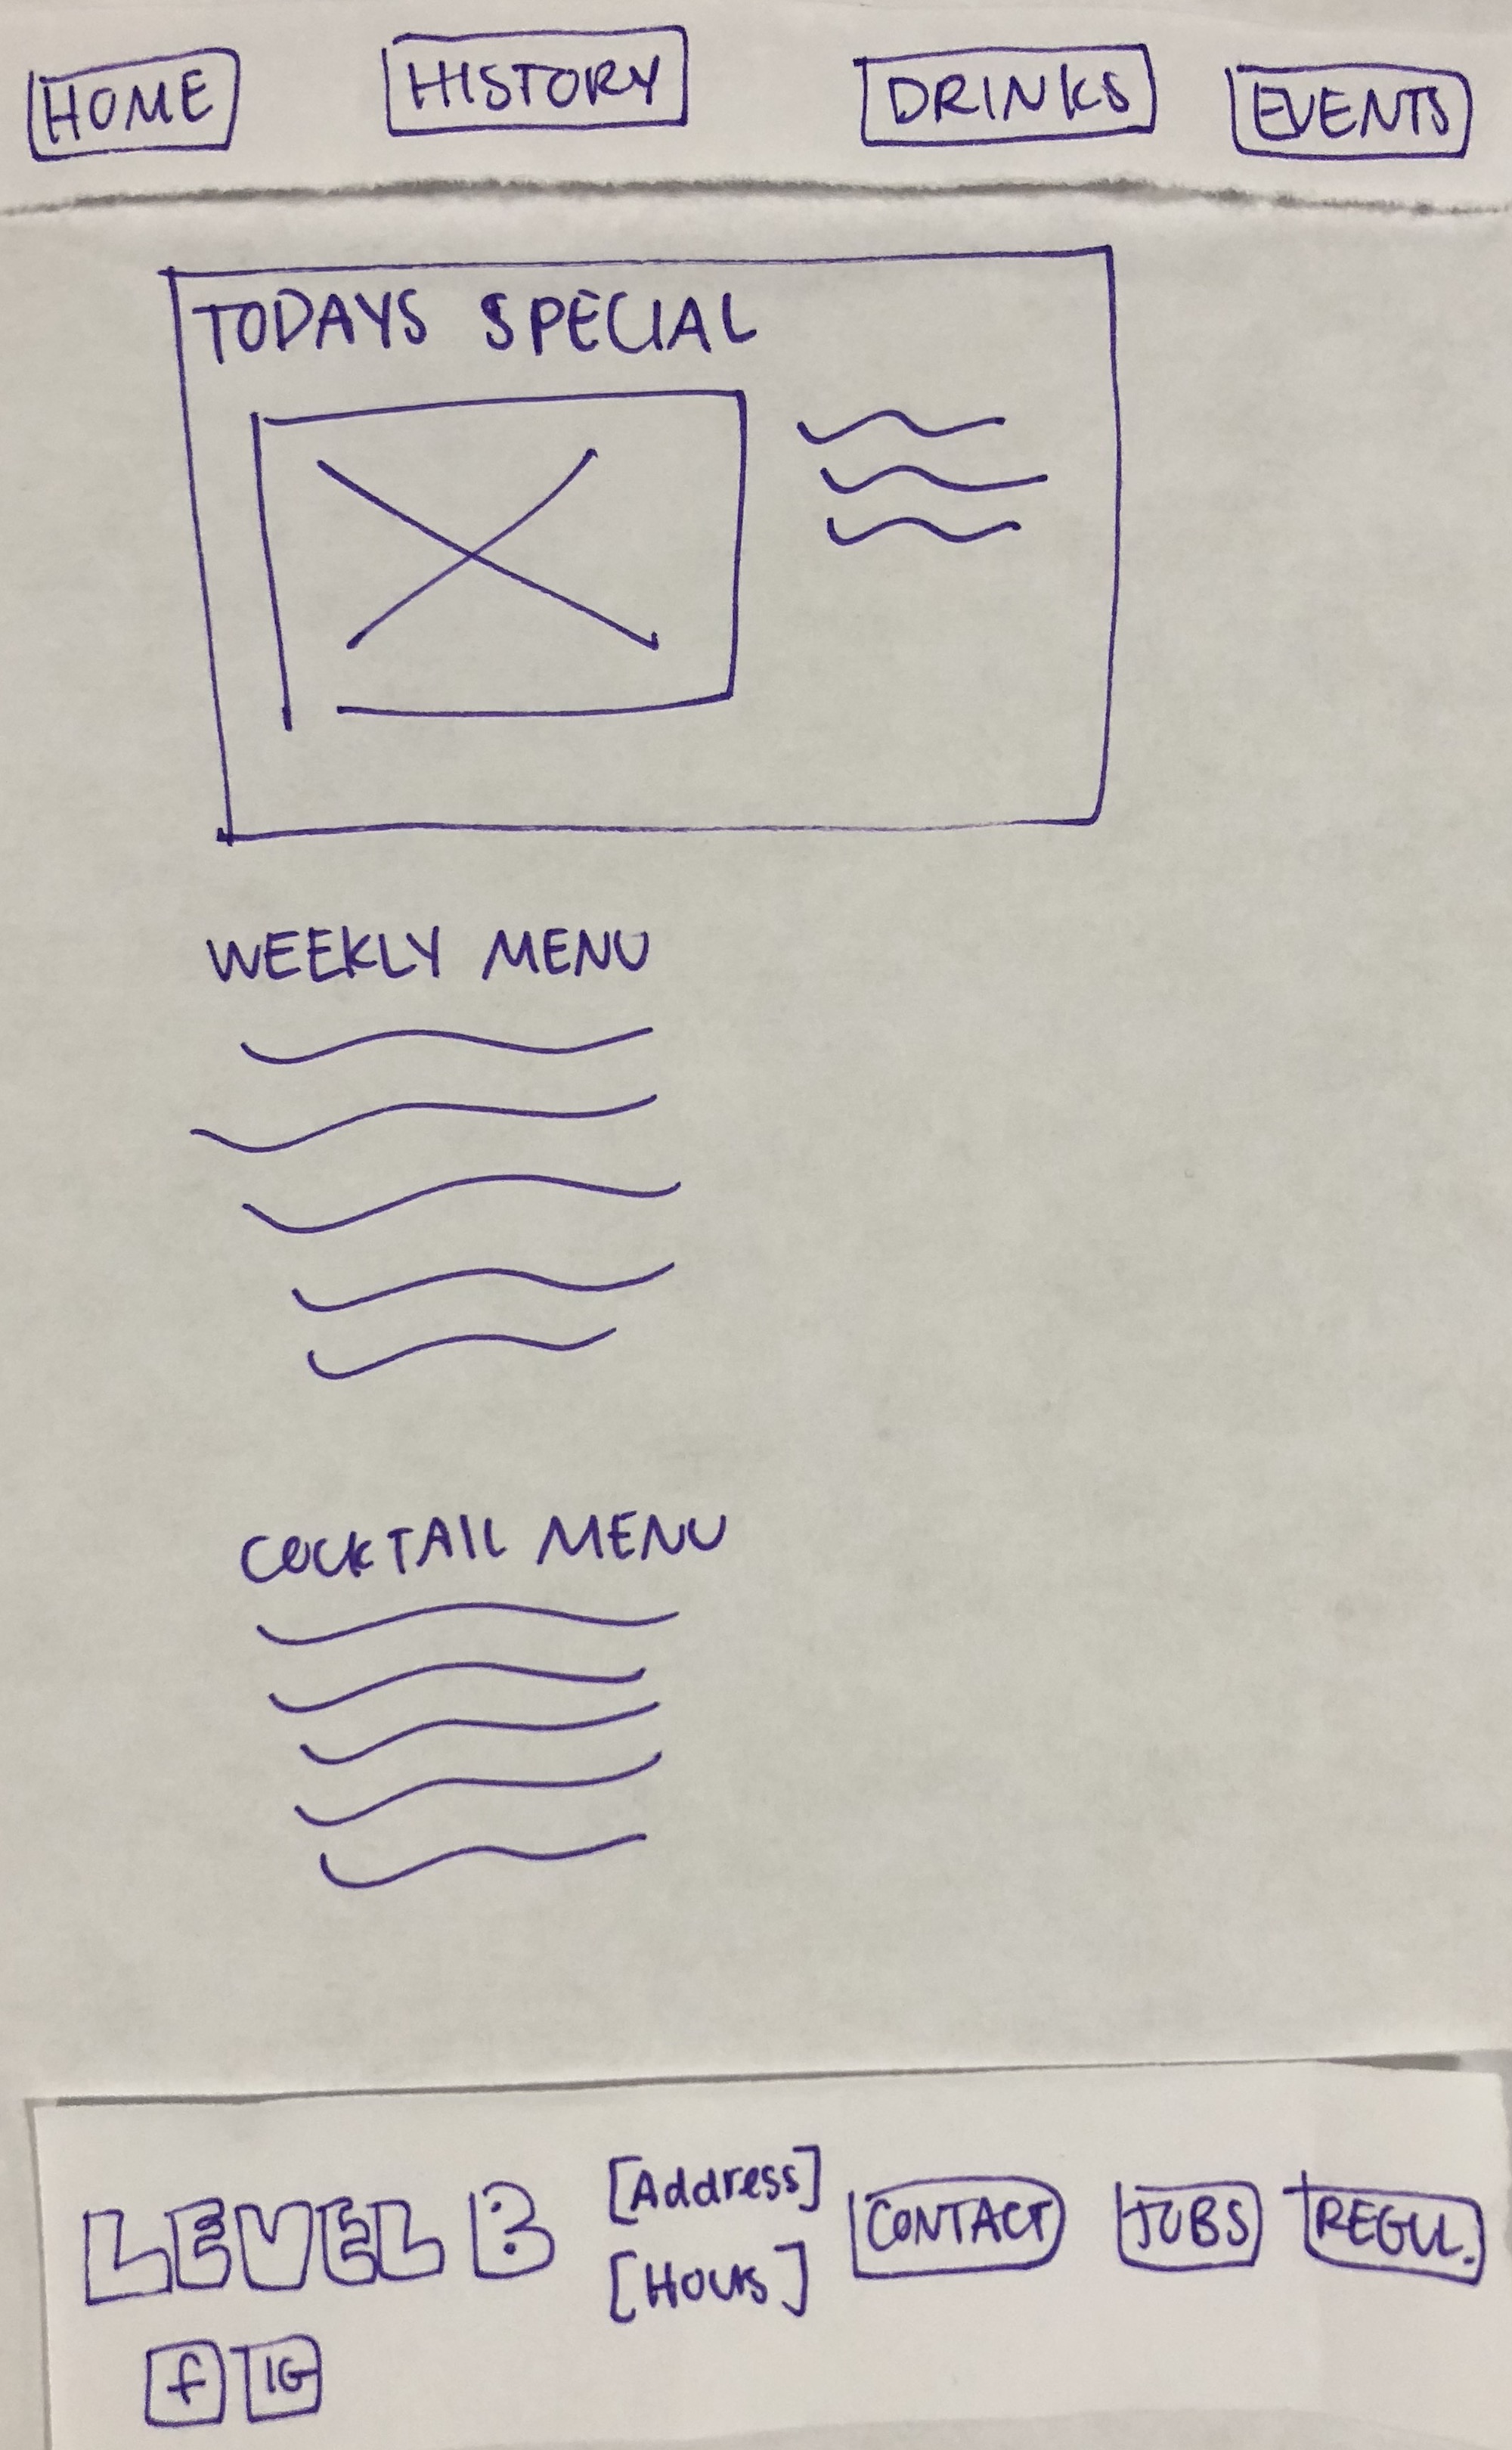 HOME HISTORY DRINKS EVENTS
TODAYS SPECIAL
WEEKLY MENU
COCKTAIL MENU
LEVEL B [Address] CONTACT JOBS REGU.
[Hours]
f IG